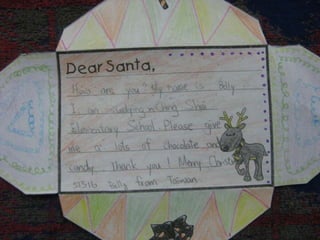 Dear Santa,
How are you? My name is Billy
I am studying in Ching Shui
Elementary School. Please give
me a lots of chocolate and
candy. Thank you! Merry Christmas
Billy from Taiwan